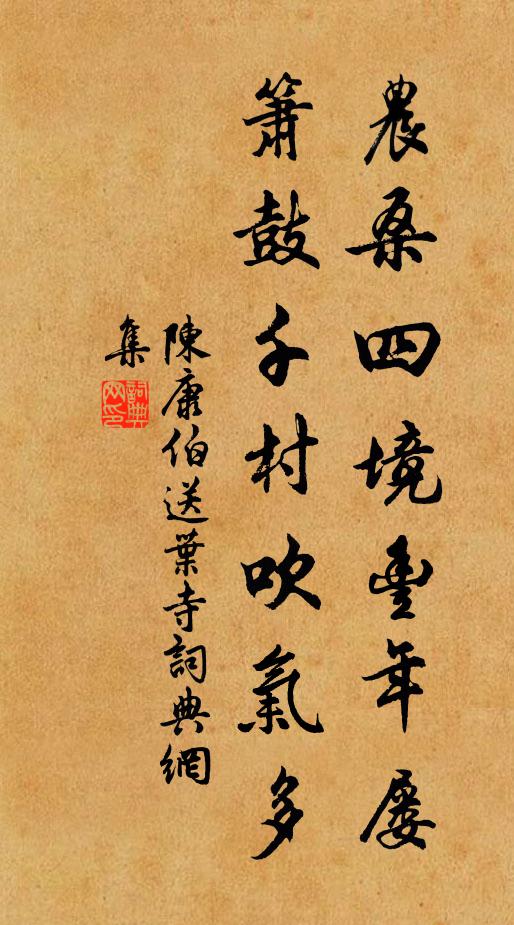 農桑四境豊年屢
簫鼓千村吹氣多
陳康伯送葉寺詞典網
集
詞典網印